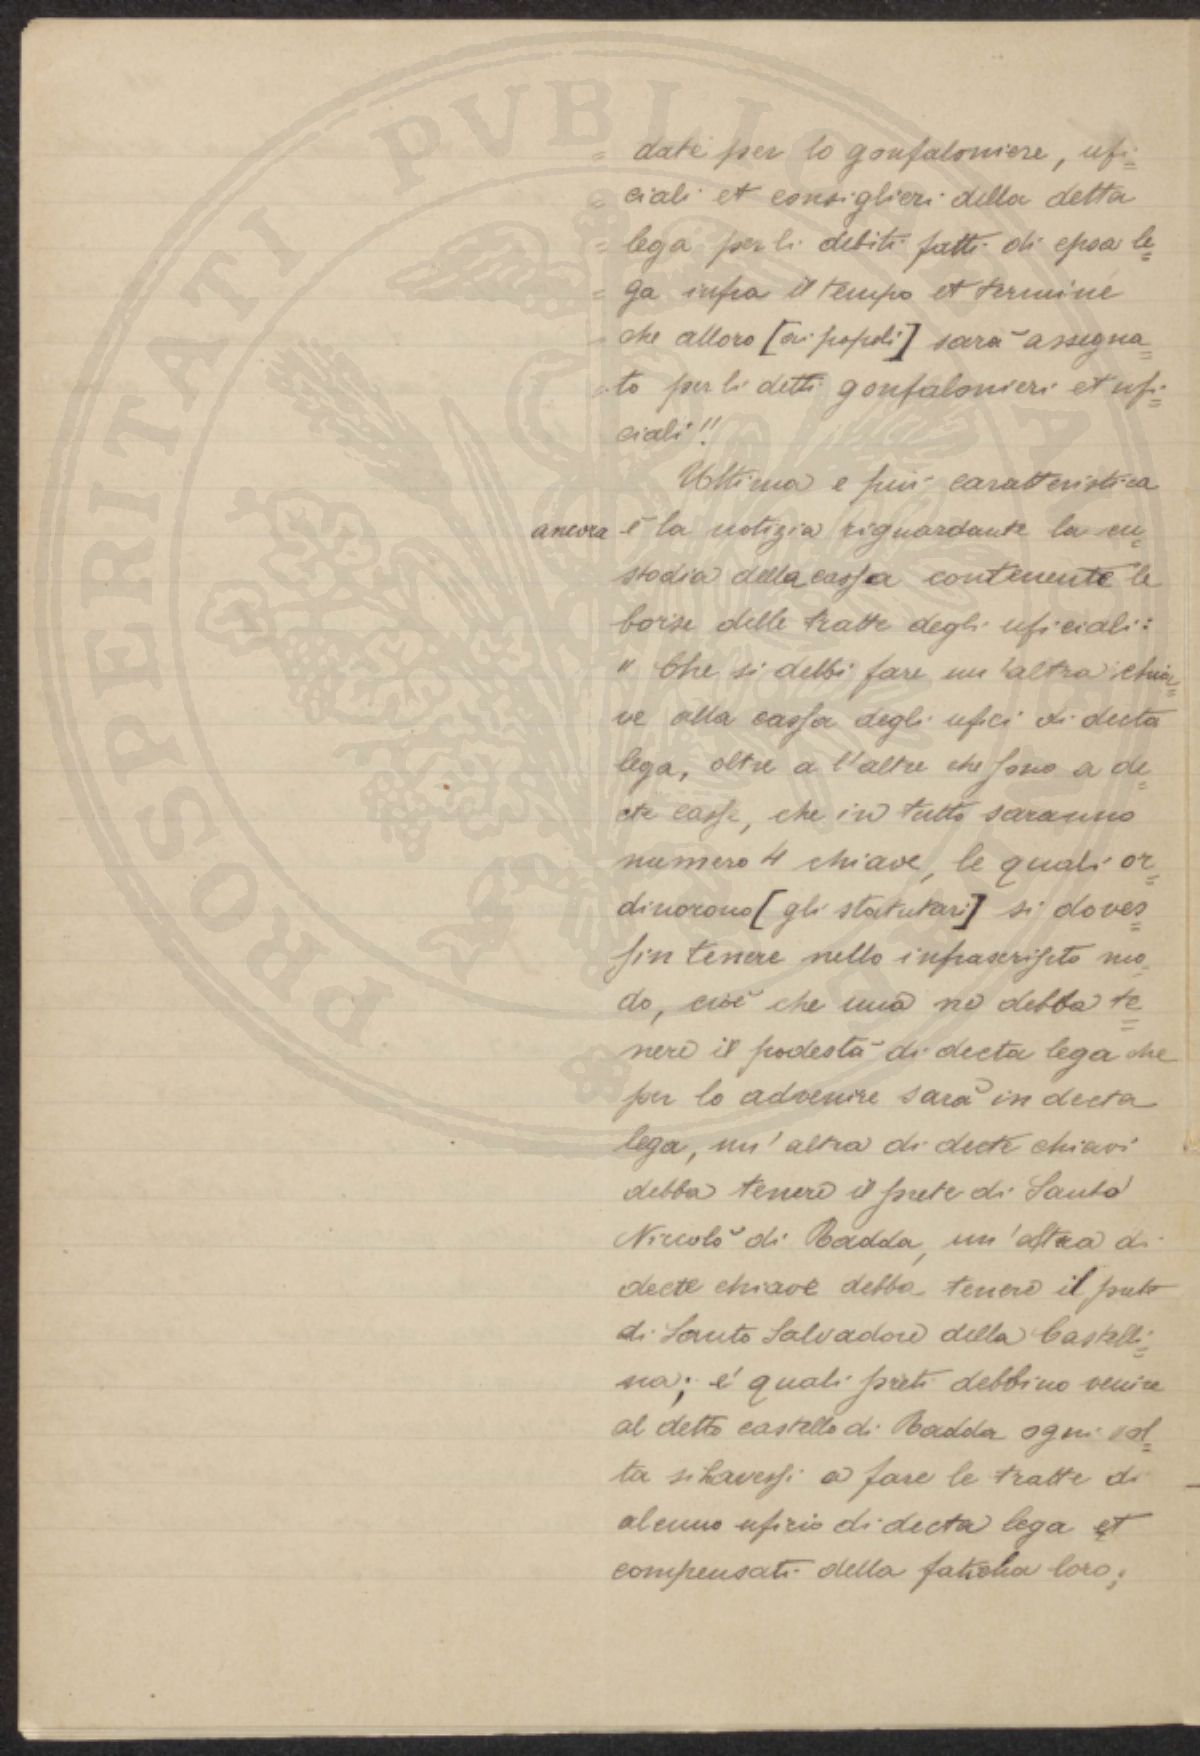 = date per lo gonfaloniere, ufi=
= ciali et consiglieri della detta
= lega per li debiti fatti di epsa le=
= ga infra il tempo et termine
= che alloro [ai popoli] sarà assegna=
= to per li detti gonfalonieri et ufi=
ciali"!
Ultima e più caratteristica
ancora è la notizia riguardante la cu=
stodia della cassa contenente le
borse delle tratte degli uficiali:
" Che si debbi fare un'altra chia=
ve alla cassa degli ufici di decta
lega, oltre a l'altre che sono a de=
cte casse, che in tutto saranno
numero 4 chiave, le quali or=
dinorono [gli statutari] si doves=
sin tenere nello infrascripto mo=
do, cioè che una ne debba te=
nere il podestà di decta lega che
per lo advenire sarà in decta
lega, un'altra di decte chiavi
debba tenere il prete di Santo
Niccolò di Radda, un'altra di
decte chiave debba tenere il prete
di Santo Salvadore della Castelli=
na; e' quali preti debbino venire
al detto castello di Radda ogni vol=
ta si havessi a fare le tratte di
alcuno uficio di decta lega et
compensati della faticha loro;
PROSPERITATI PVBLICAE